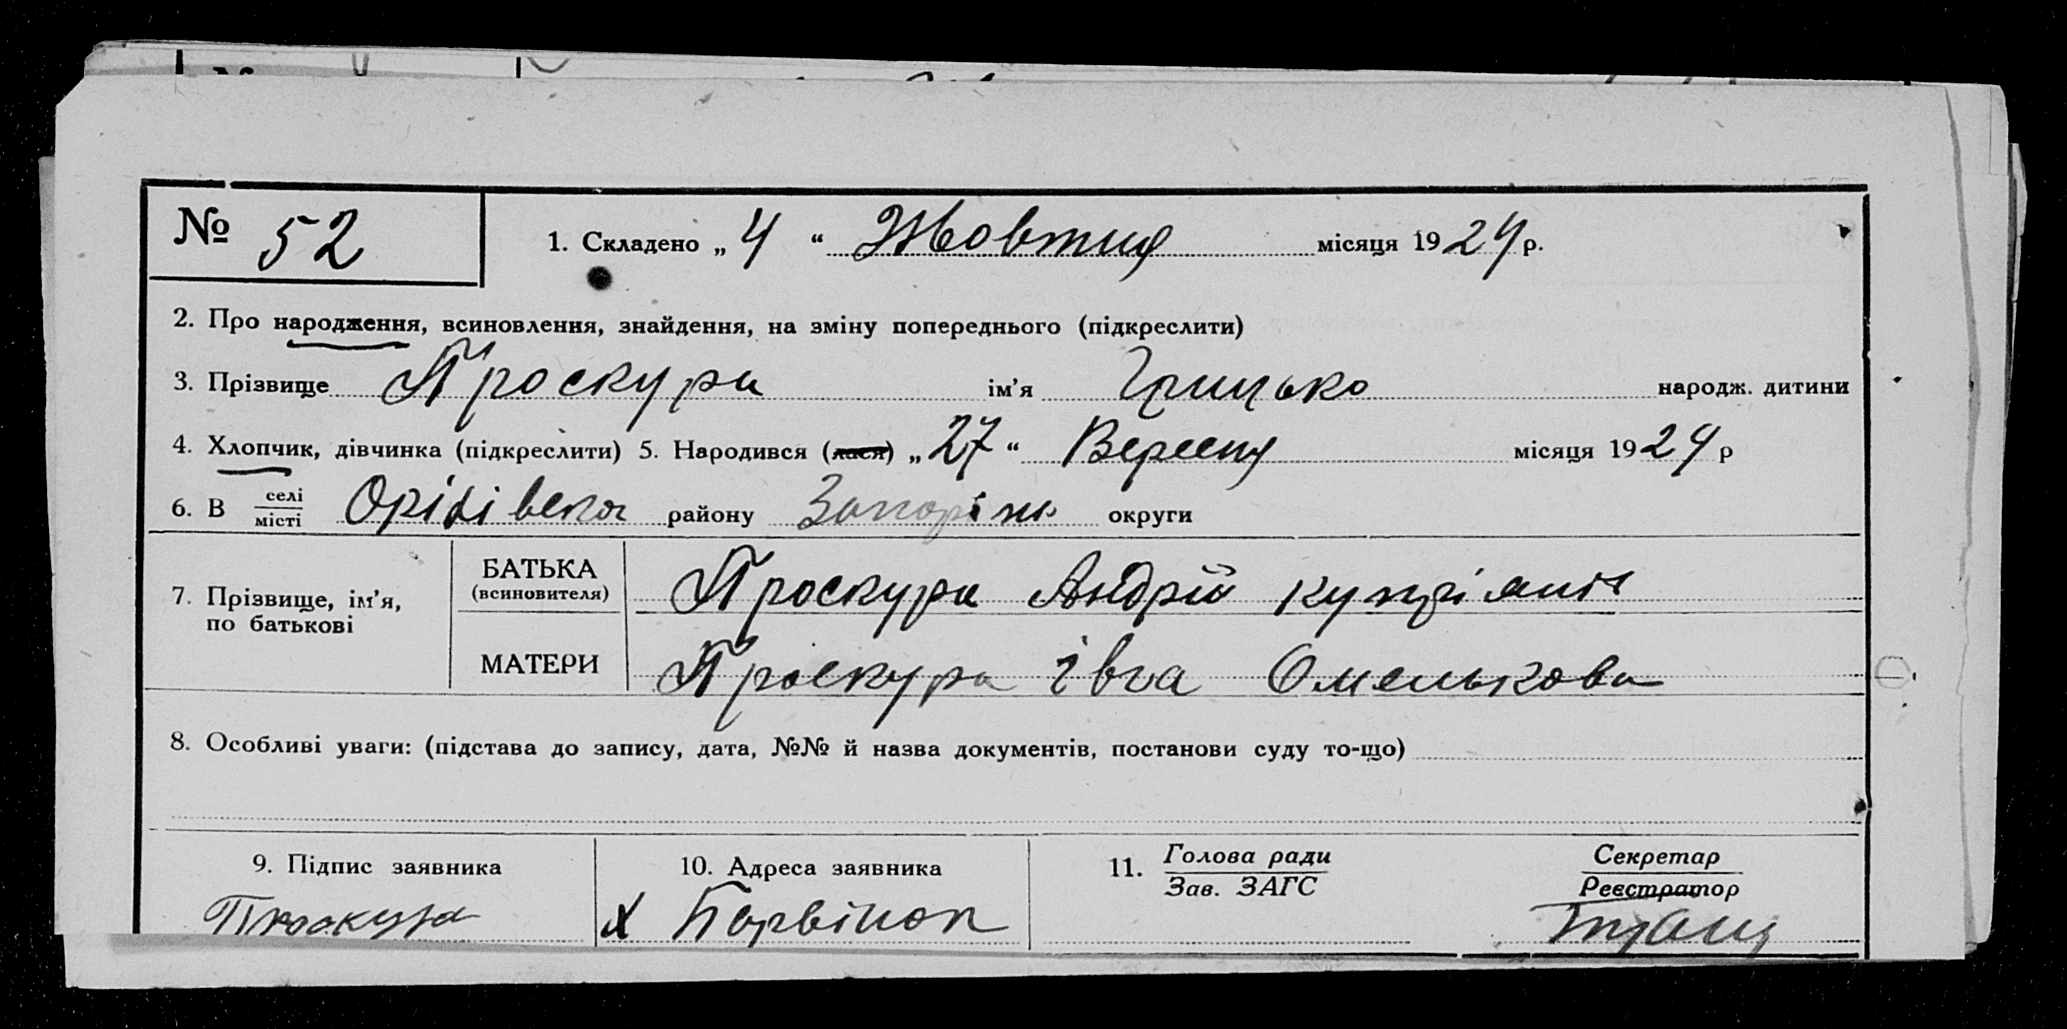 № 52
1. Складено „ 4 “ Жовтня місяця 1924 р.
2. Про народження, всиновлення, знайдення, на зміну попереднього (підкреслити)
3. Прізвище Проскура ім’я Грицько народж. дитини
4. Хлопчик, дівчинка (підкреслити) 5. Народився (лася) „ 27 “ Вересня місяця 1924 р
6. В селі
місті Оріхівська району Запоріж округи
7. Прізвище, ім’я, по батькові
БАТЬКА (всиновителя) Проскура Андрій Купріянів
МАТЕРИ Проскура Івга Омелькова
8. Особливі уваги: (підстава до запису, дата, №№ й назва документів, постанови суду то-що)
9. Підпис заявника
Проскура
10. Адреса заявника
х Барвінок
11. Голова ради
Зав. ЗАГС
Секретар
Реєстратор